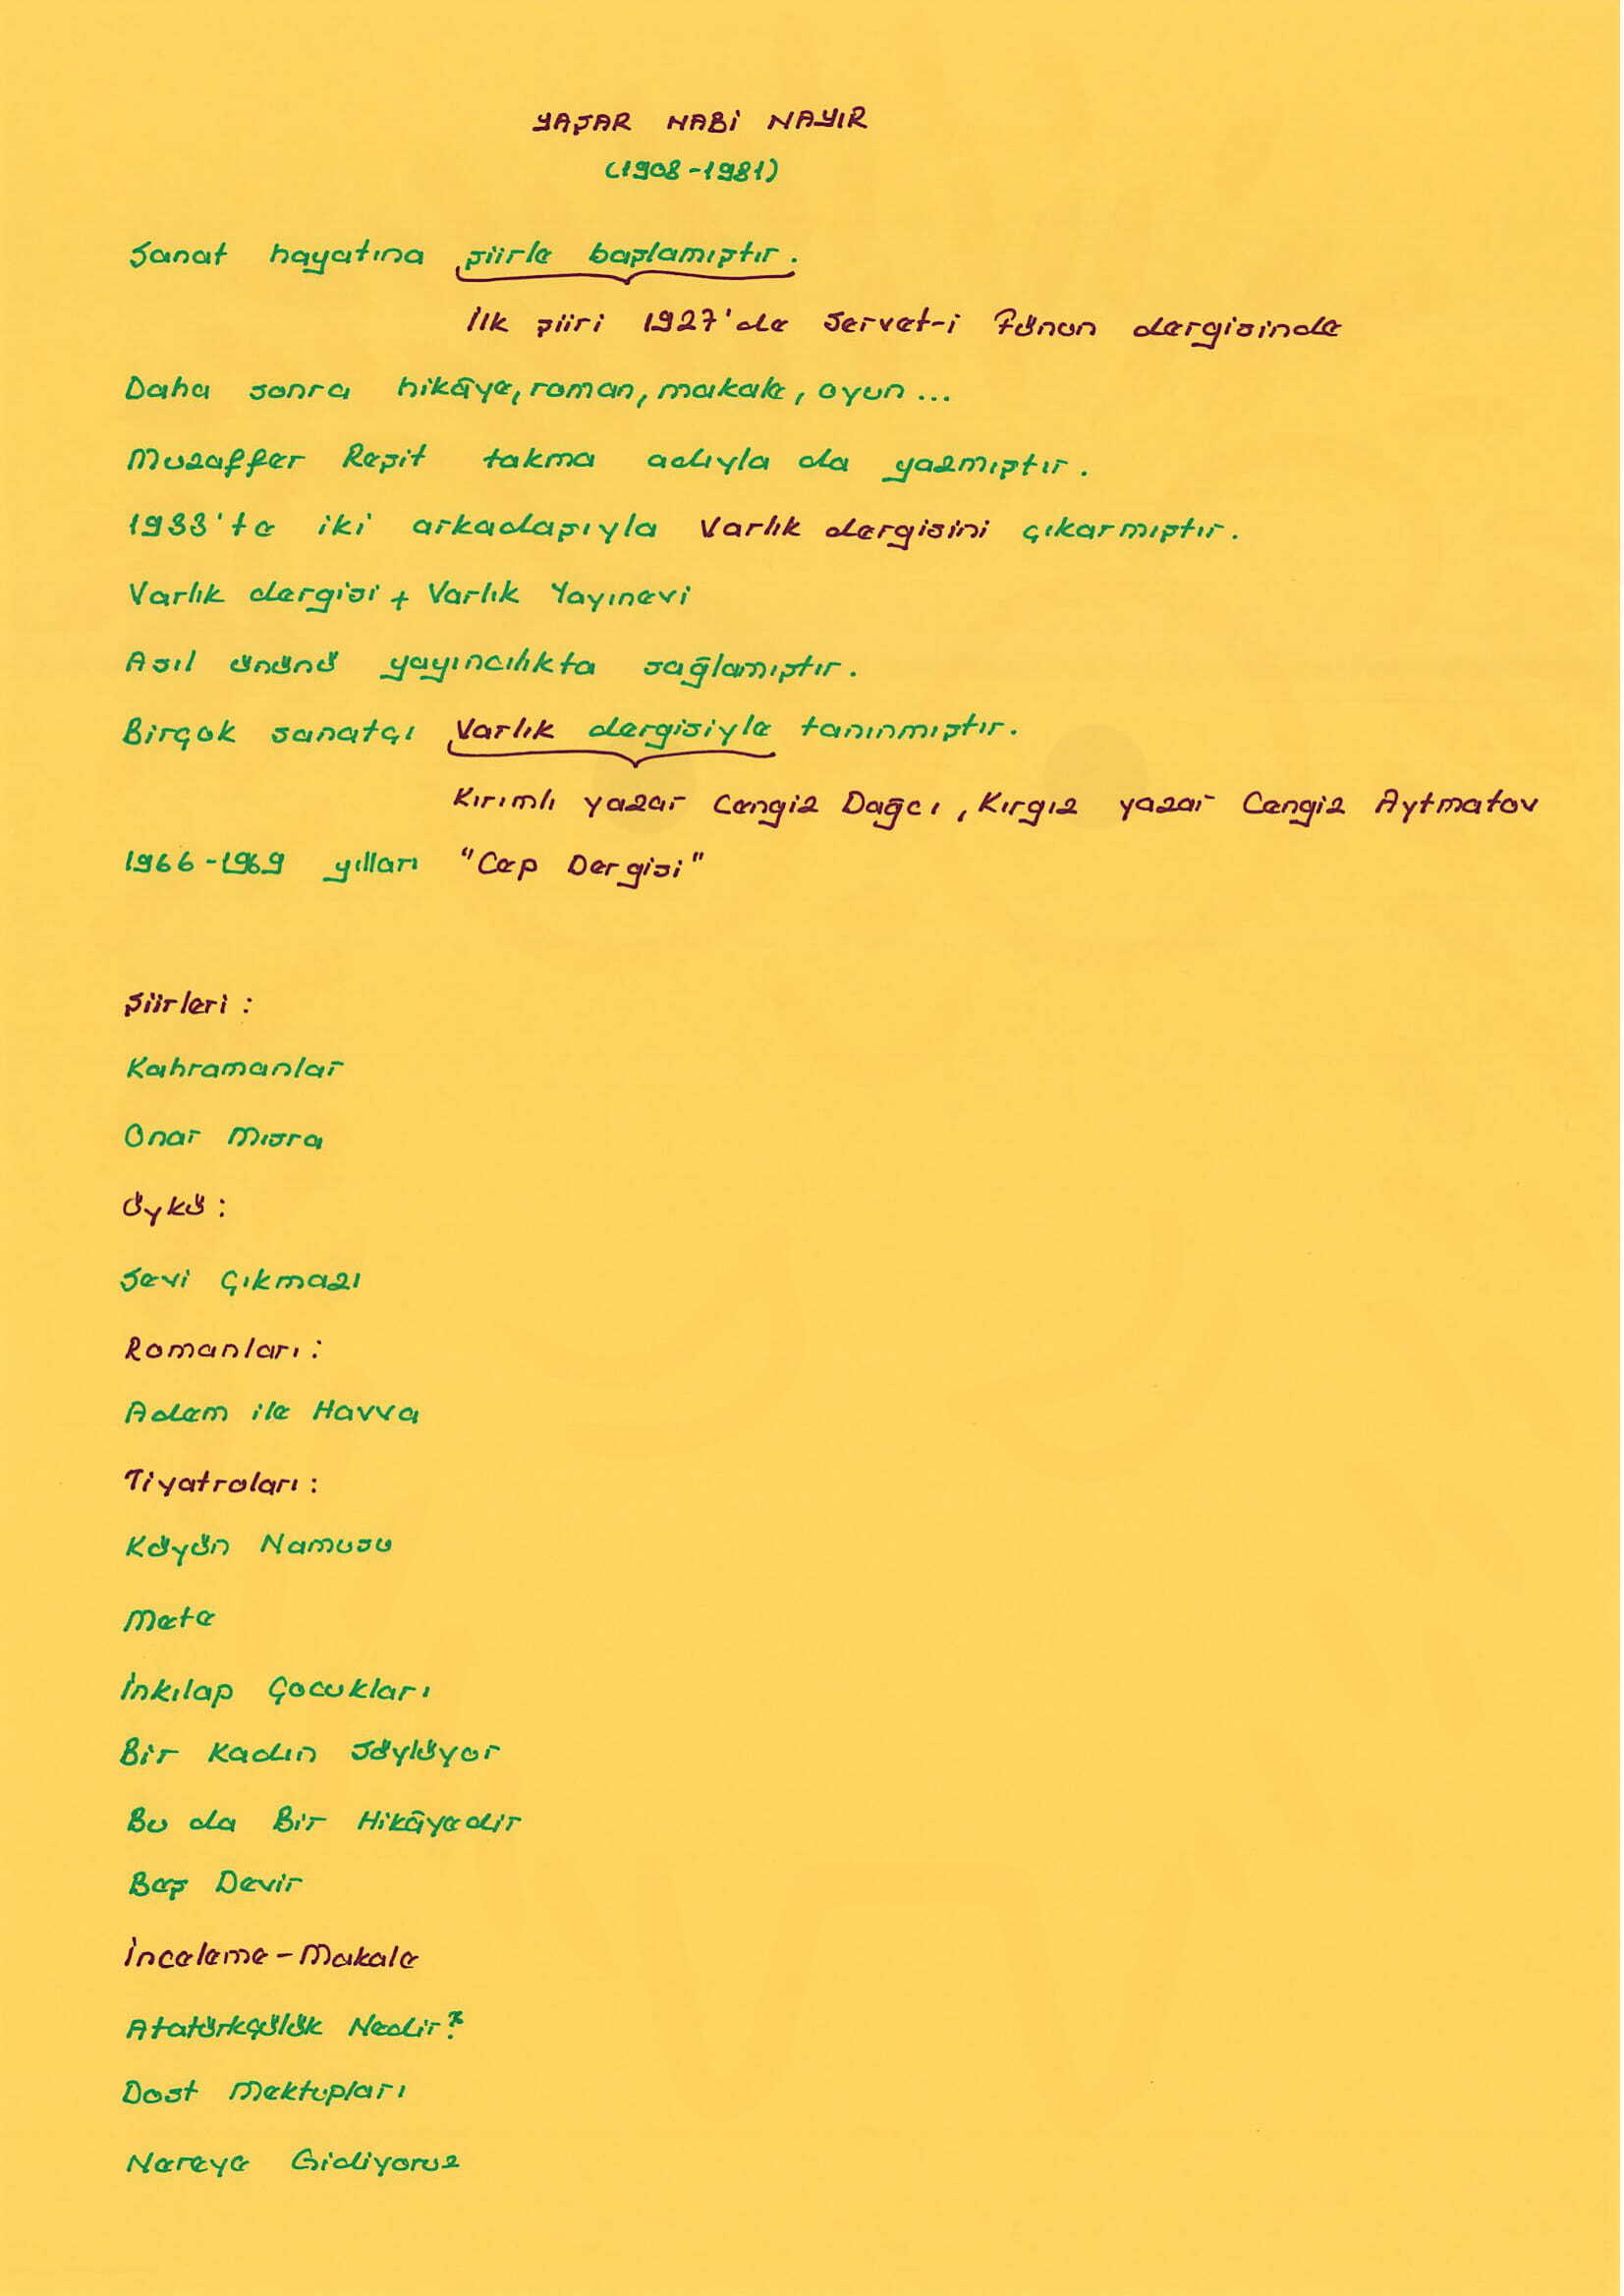 YAŞAR NABİ NAYIR
(1908-1981)
Sanat hayatına şiirle başlamıştır.
İlk şiiri 1927'de Servet-i Fünun dergisinde
Daha sonra hikâye, roman, makale, oyun...
Muzaffer Reşit takma adıyla da yazmıştır.
1933'te iki arkadaşıyla Varlık dergisini çıkarmıştır.
Varlık dergisi + Varlık Yayınevi
Asıl ününü yayıncılıkta sağlamıştır.
Birçok sanatçı Varlık dergisiyle tanınmıştır.
Kırımlı yazar Cengiz Dağcı, Kırgız yazar Cengiz Aytmatov
1966-1969 yılları "Cep Dergisi"
Şiirleri:
Kahramanlar
Onar Mısra
Öykü:
Sevi Çıkmazı
Romanları:
Adem ile Havva
Tiyatroları:
Köyün Namusu
Mete
İnkılap Çocukları
Bir Kadın Söylüyor
Bu da Bir Hikâyedir
Beş Devir
İnceleme-Makale
Atatürkçülük Nedir?
Dost Mektupları
Nereye Gidiyoruz